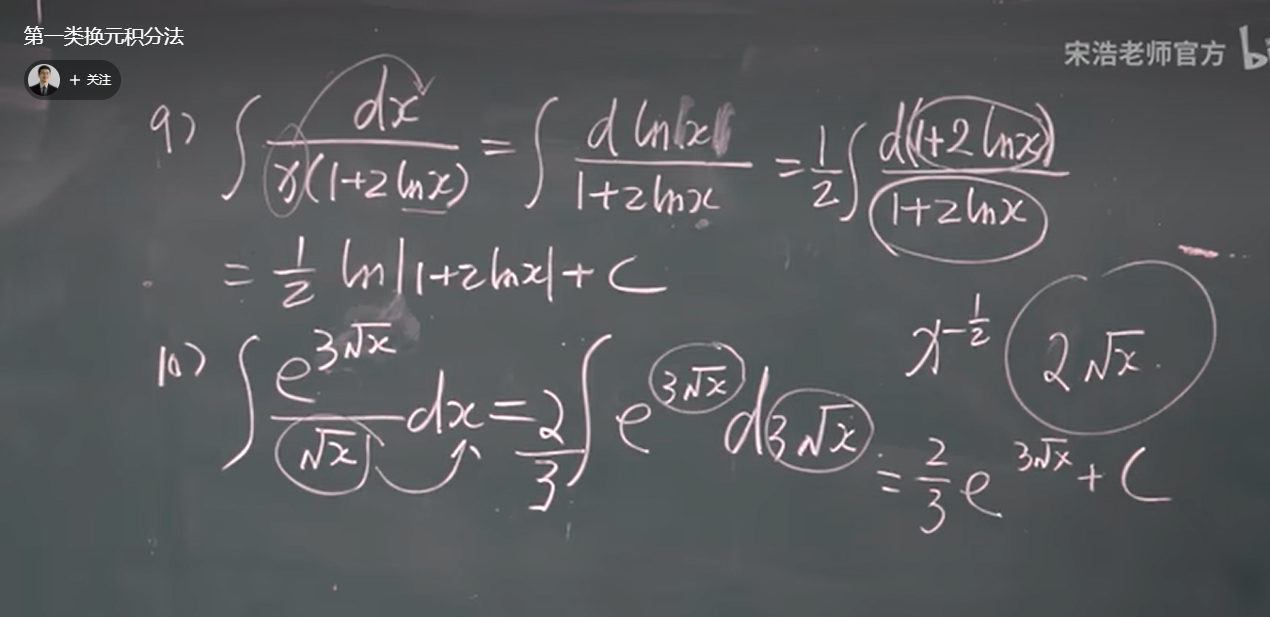 第一类换元积分法
+ 关注
宋浩老师官方 bi
9) ∫ dx / x(1+2lnx) = ∫ d ln|x| / 1+2lnx = 1/2 ∫ d(1+2lnx) / 1+2lnx
= 1/2 ln|1+2lnx| + C
x^(-1/2) 2√x
10) ∫ e^(3√x) / √x dx = 2/3 ∫ e^(3√x) d3√x = 2/3 e^(3√x) + C